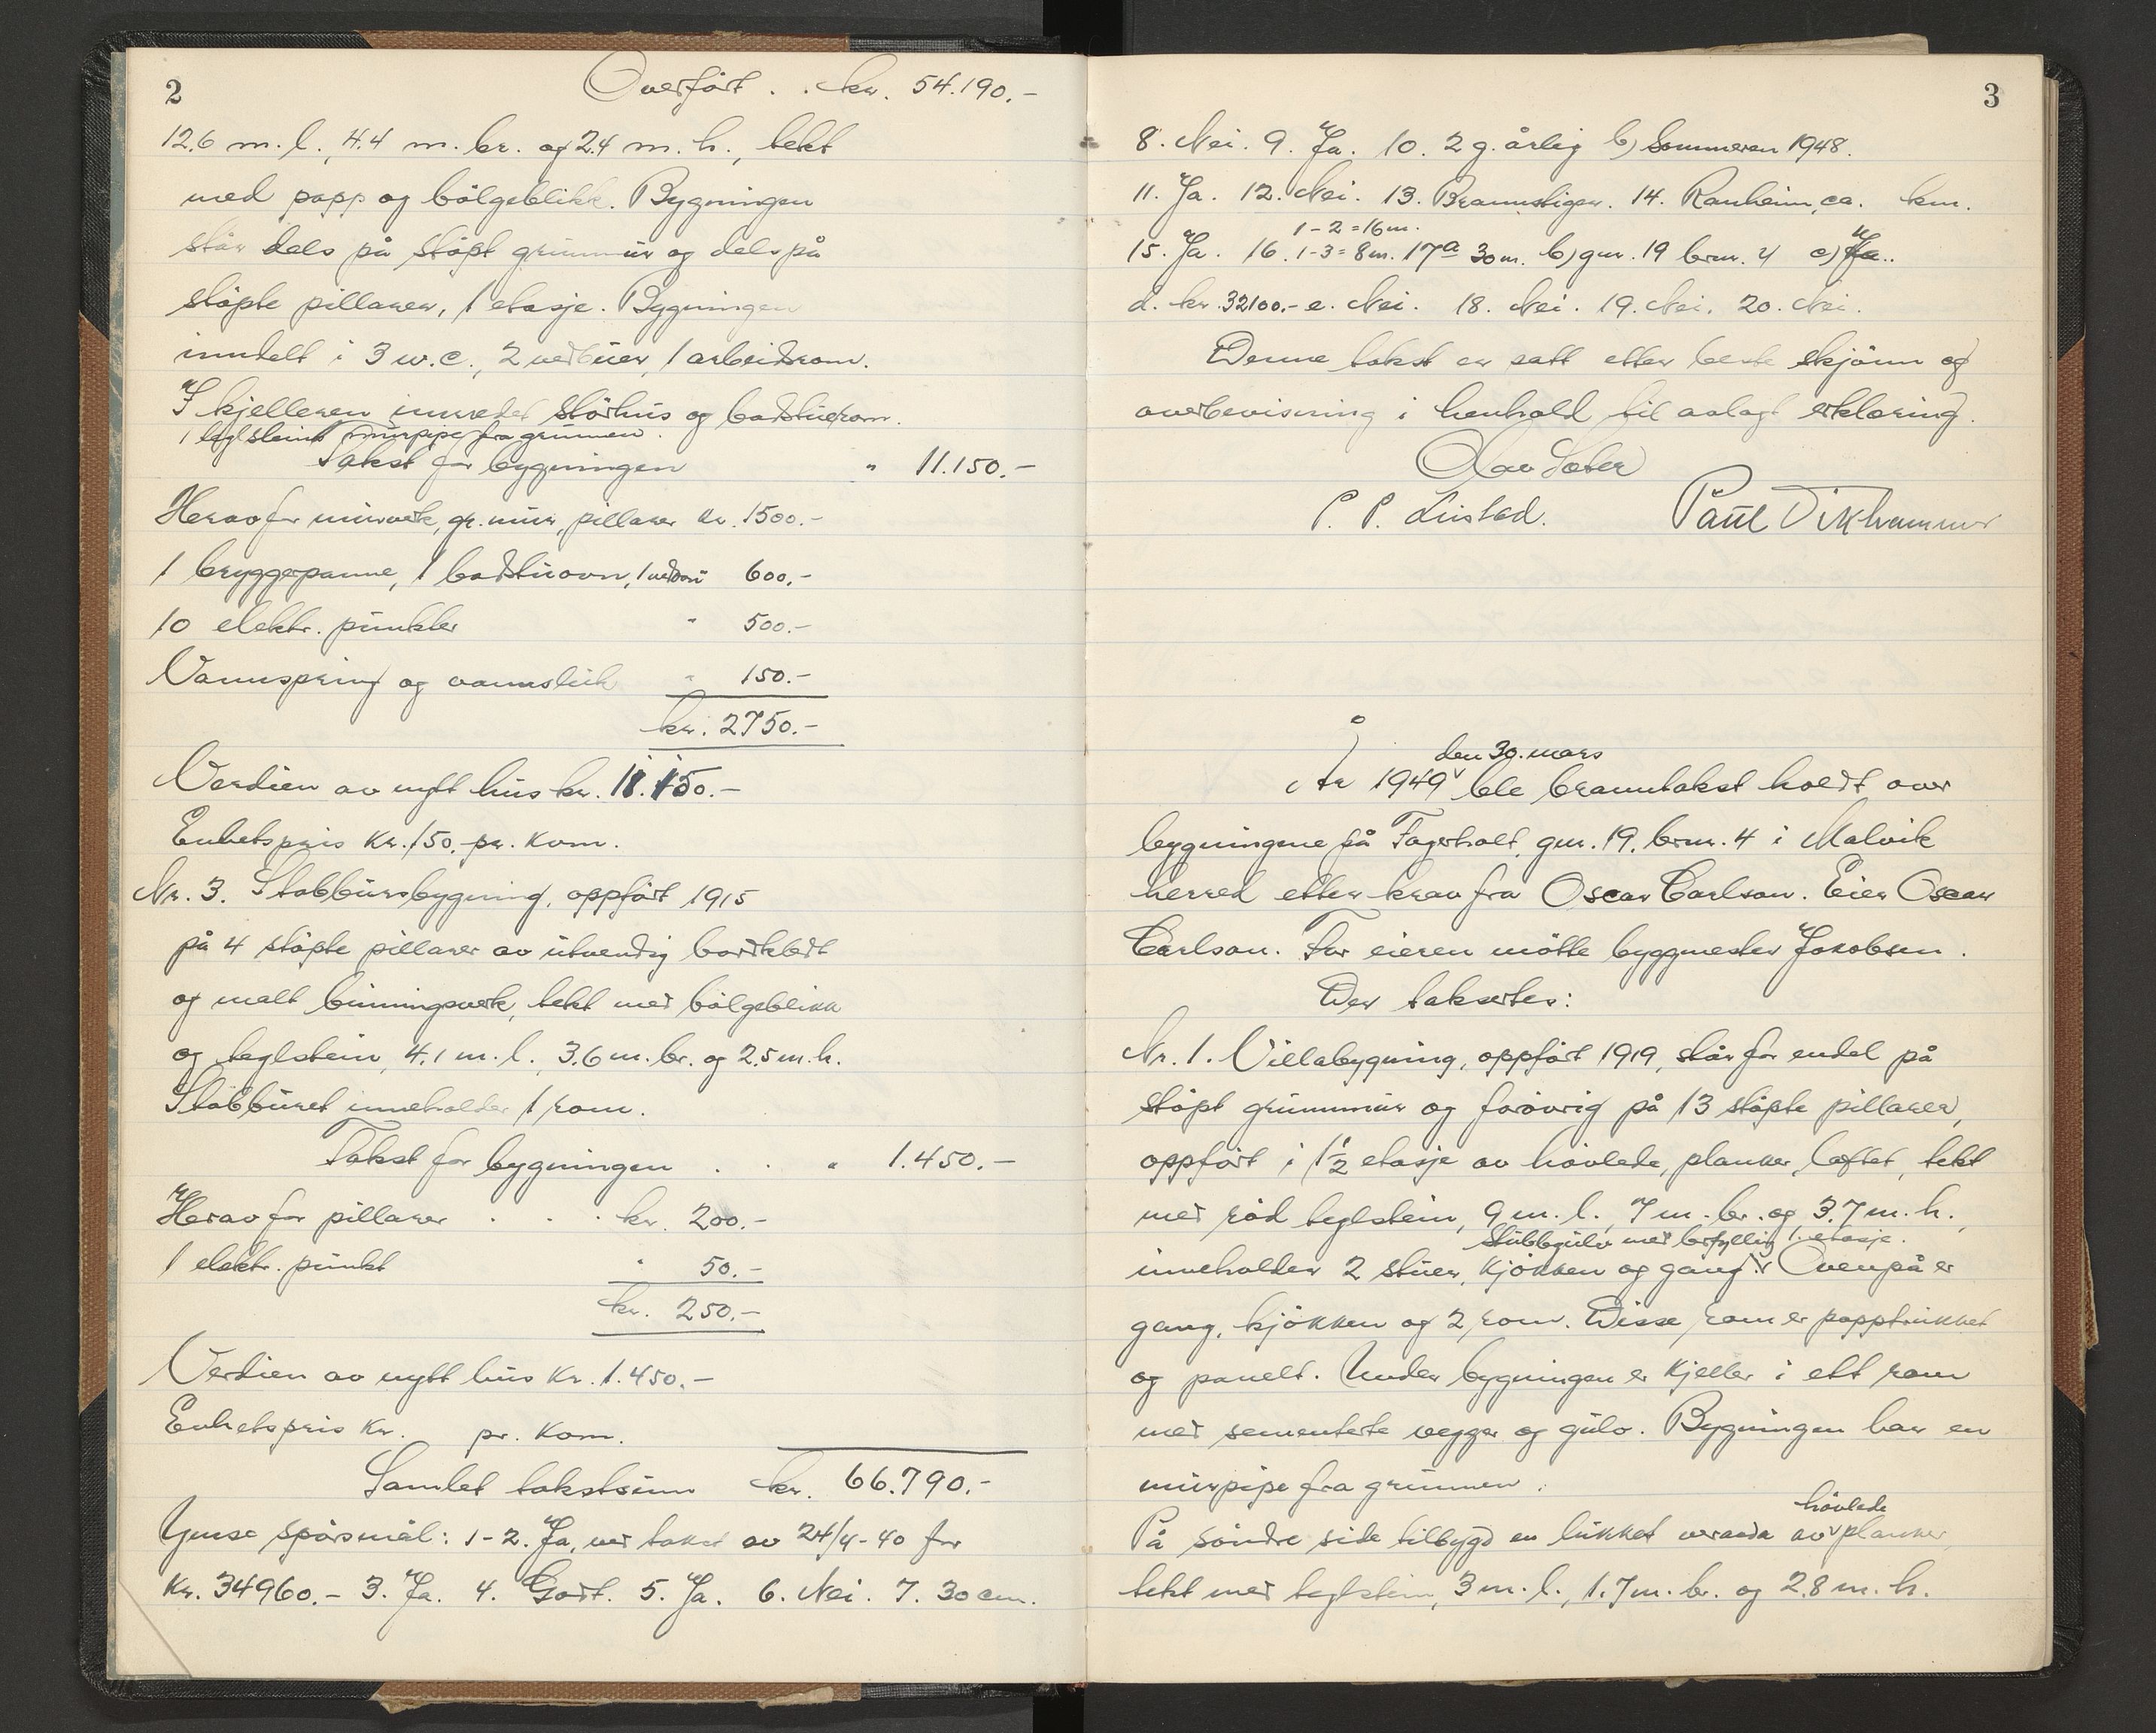 2
Overført . . kr. 54.190.-
12.6 m. l., 4.4 m. br. og 2.4 m. h., tekt
med papp og bølgeblikk. Bygningen
står dels på støpt grunnmur og dels på
støpte pillarer, 1 etasje. Bygningen
inndelt i 3 w.c., 2 vedbuer, 1 arbeidsrom.
I kjelleren innredet störhus og badstuerom.
1 teglsteins murpipe fra grunnen.
Takst for bygningen " 11.150.-
Herav for murverk, gr.mur, pillarer kr. 1500.-
1 bryggepanne, 1 badstuovn, 600.-
10 elektr. punkter " 500.-
Vannspring og vannslukk " 150.-
kr. 2750.-
Verdien av nytt hus kr. 11.150.-
Enhetspris kr. 150.- pr. kvm.
Nr. 3. Stabbursbygning, oppført 1915
på 4 støpte pillarer av utvendig bordkledt
og malt binningsverk, tekt med bølgeblikk
og teglstein, 4.1 m. l., 3.6 m. br. og 2.5 m. h.
Stabburet inneholder 1 rom.
Takst for bygningen . . " 1.450.-
Herav for pillarer . . . kr. 200.-
1 elektr. punkt " 50.-
kr. 250.-
Verdien av nytt hus kr. 1.450.-
Enhetspris kr. pr. kvm.
Samlet takstsum kr. 66.790.-
Ymse spörsmål: 1-2. Ja, ved takst av 24/4-40 for
kr. 34960.- 3. Ja. 4. Godt. 5. Ja. 6. Nei. 7. 30 cm.
3
8. Nei. 9. Ja. 10. 2 g. årlig b) Sommeren 1948.
11. Ja. 12. Nei. 13. Brannstiger. 14. Ranheim, ca. km.
1-2 = 16 m.
15. Ja. 16. 1-3 = 8 m. 17a 30 m. b) gnr. 19 brnr. 4 c) Ja..
d. kr. 32100.- e. Nei. 18. Nei. 19. Nei. 20. Nei.
Denne takst er satt etter beste skjönn og
overbevisning i henhold til avlagt erklæring.
Olav Sæter
P. P. Leistad. Paul Dirkhammer
den 30. mars
År 1949 ble branntakst holdt over
bygningene på Fagerholt, gnr. 19, brnr. 4 i Malvik
herred etter krav fra Oscar Carlson. Eier Oscar
Carlson. For eieren møtte byggmester Jakobsen.
Der taksertes:
Nr. 1. Villabygning, oppført 1919, står for endel på
støpt grunnmur og forøvrig på 13 støpte pillarer,
oppført i 1 1/2 etasje av høvlede, planker, laftet, tekt
med rød teglstein, 9 m. l., 7 m. br. og 3.7 m. h.,
Stubbgulv med 1. etasje.
inneholder 2 stuer, kjøkken og gang. Ovenpå er
gang, kjøkken og 2 rom. Disse rom er papptrukket
og panelt. Under bygningen er kjeller i ett rom
med sementerte vegger og gulv. Bygningen har en
murpipe fra grunnen.
høvlede
På søndre side tilbygd en lukket veranda av planker,
tekt med teglstein, 3 m. l., 1.7 m. br. og 2.8 m. h.